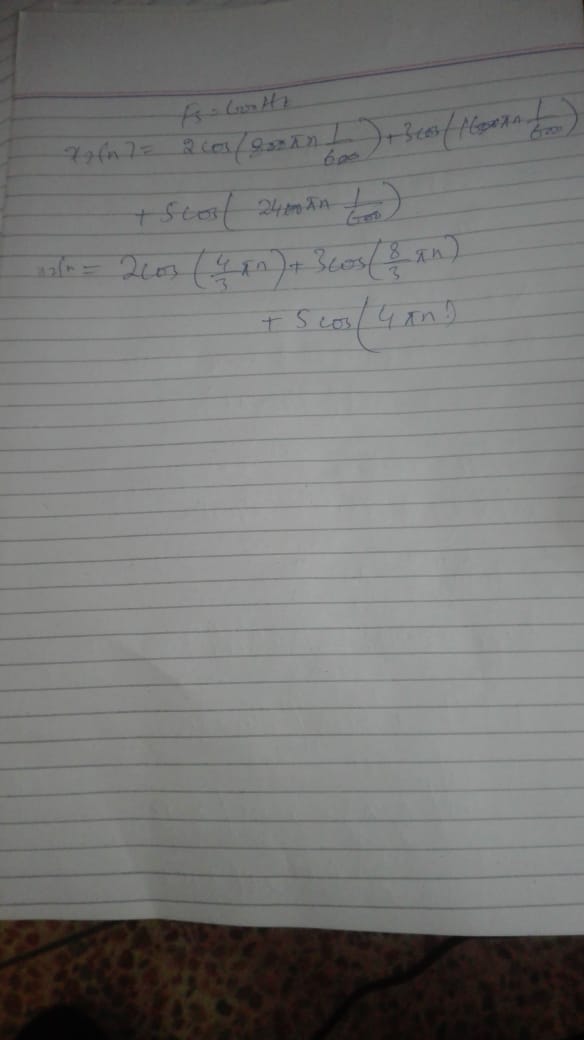 Fs = 600Hz
x₂(n) = 2cos(800πn 1/600) + 3cos(1600πn 1/600)
+ 5cos( 2400πn 1/600)
= 2cos(4/3 πn) + 3cos(8/3 πn)
+ 5cos(4πn)